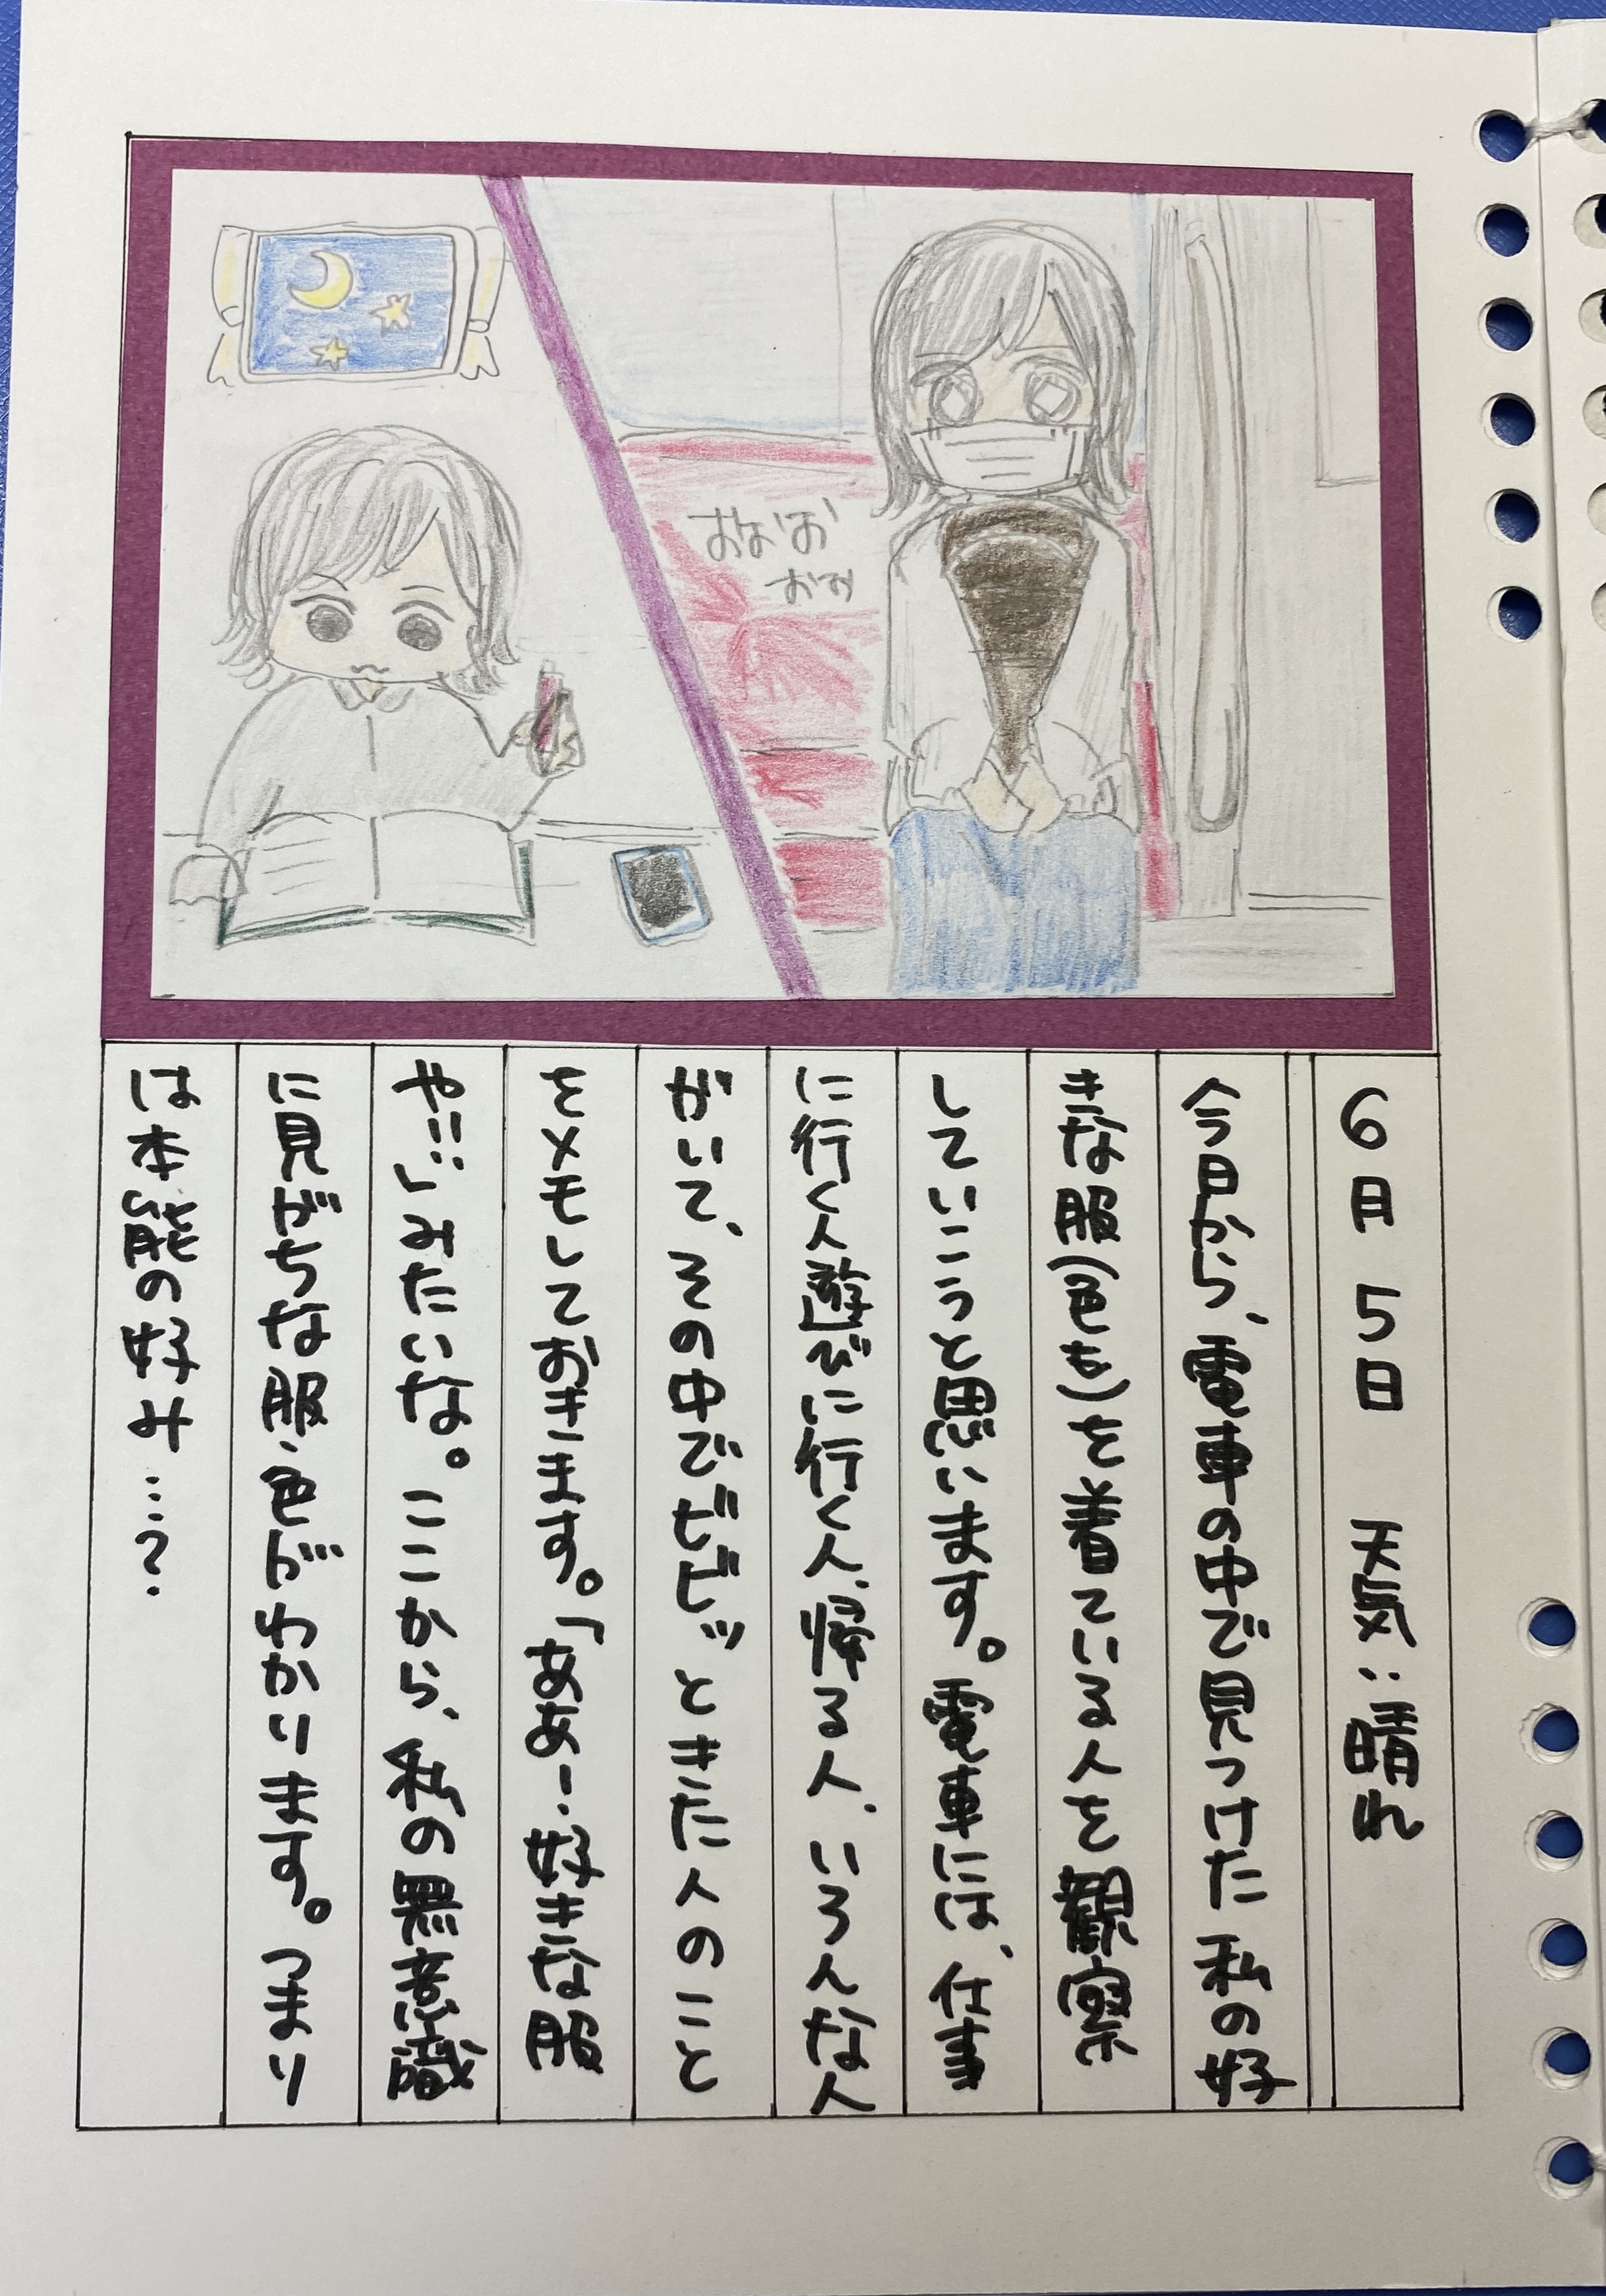 6月5日 天気:晴れ
今日から、電車の中で見つけた私の好
きな服(色も)を着ている人を観察
していこうと思います。電車には、仕事
に行く人遊びに行く人、帰る人、いろんな人
がいて、その中でビビッときた人のこと
をメモしておきます。「ああー、好きな服
や!!」みたいな。ここから、私の無意識
に見がちな服、色がわかります。つまり
は本能の好み…?